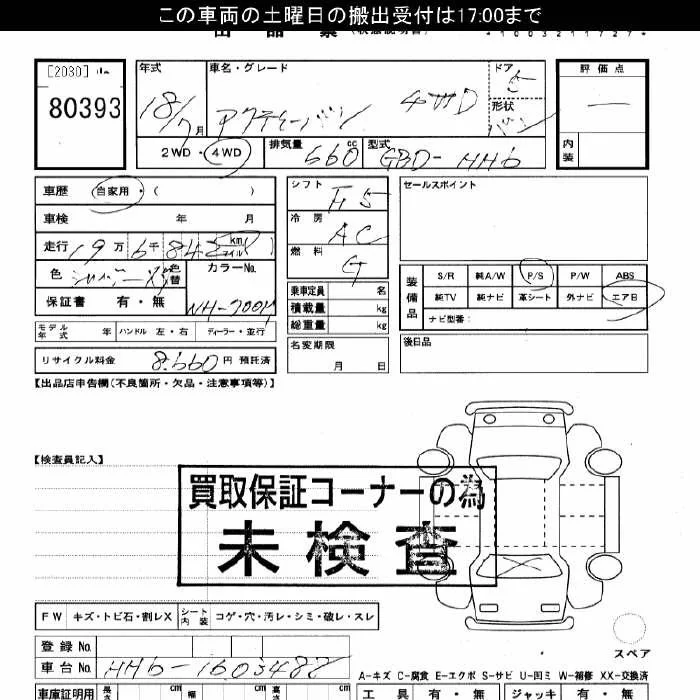 この車両の土曜日の搬出受付は17:00まで
[2030]
80393
年式 18/7月
車名・グレード アクティーバン 4WD
ドア 5
形状 バン
2WD・4WD
排気量 660 cc
型式 GBD-HH6
評価点 —
内装
車歴 自家用・( )
車検 年 月
走行 19万6千842 km マイル
色 シルバー 色替
カラーNo. NH-700M
保証書 有・無
モデル年式 年 ハンドル 左・右 ディーラー・並行
リサイクル料金 8,660円 預託済
シフト F5
冷房 AC
燃料 G
乗車定員 名
積載量 kg
総重量 kg
名変期限
月 日
セールスポイント
装備品
S/R 純A/W P/S P/W ABS
純TV 純ナビ 革シート 外ナビ エアB
ナビ型番:
後日品
【出品店申告欄(不良箇所・欠品・注意事項等)】
【検査員記入】
買取保証コーナーの為
未検査
FW キズ・トビ石・割レX シート内装 コゲ・穴・汚レ・シミ・破レ・スレ
スペア
登録No.
車台No. HH6-1603482
A-キズ C-腐食 E-エクボ S-サビ U-凹ミ W-補修 XX-交換済
車庫証明用 長さ cm 幅 cm 高さ cm
工具 有・無 ジャッキ 有・無